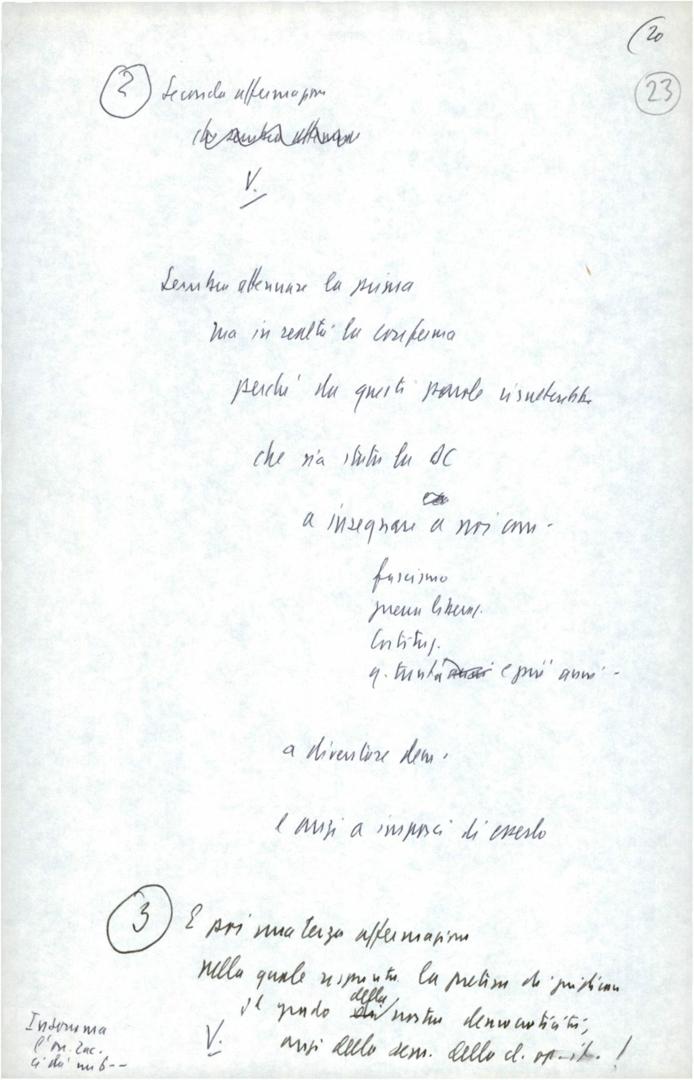 (20
23
2 Seconda affermazione
che sembra attenuare
V.
Sembra attenuare la prima
ma in realtà la conferma
perché da queste parole risulterebbe
che sia stata la DC
a insegnare a noi com.
fascismo
guerra liberaz.
Costituz.
q. trenta e più anni -
a diventare dem.
e anzi a imporci di esserlo
3 E poi una terza affermazione
nella quale rispunta la pretesa di giudicare
il grado della nostra democraticità,
V. anzi della dem. della cl. op. it. !
Insomma
l'on. Zac.
ci dà un 6--